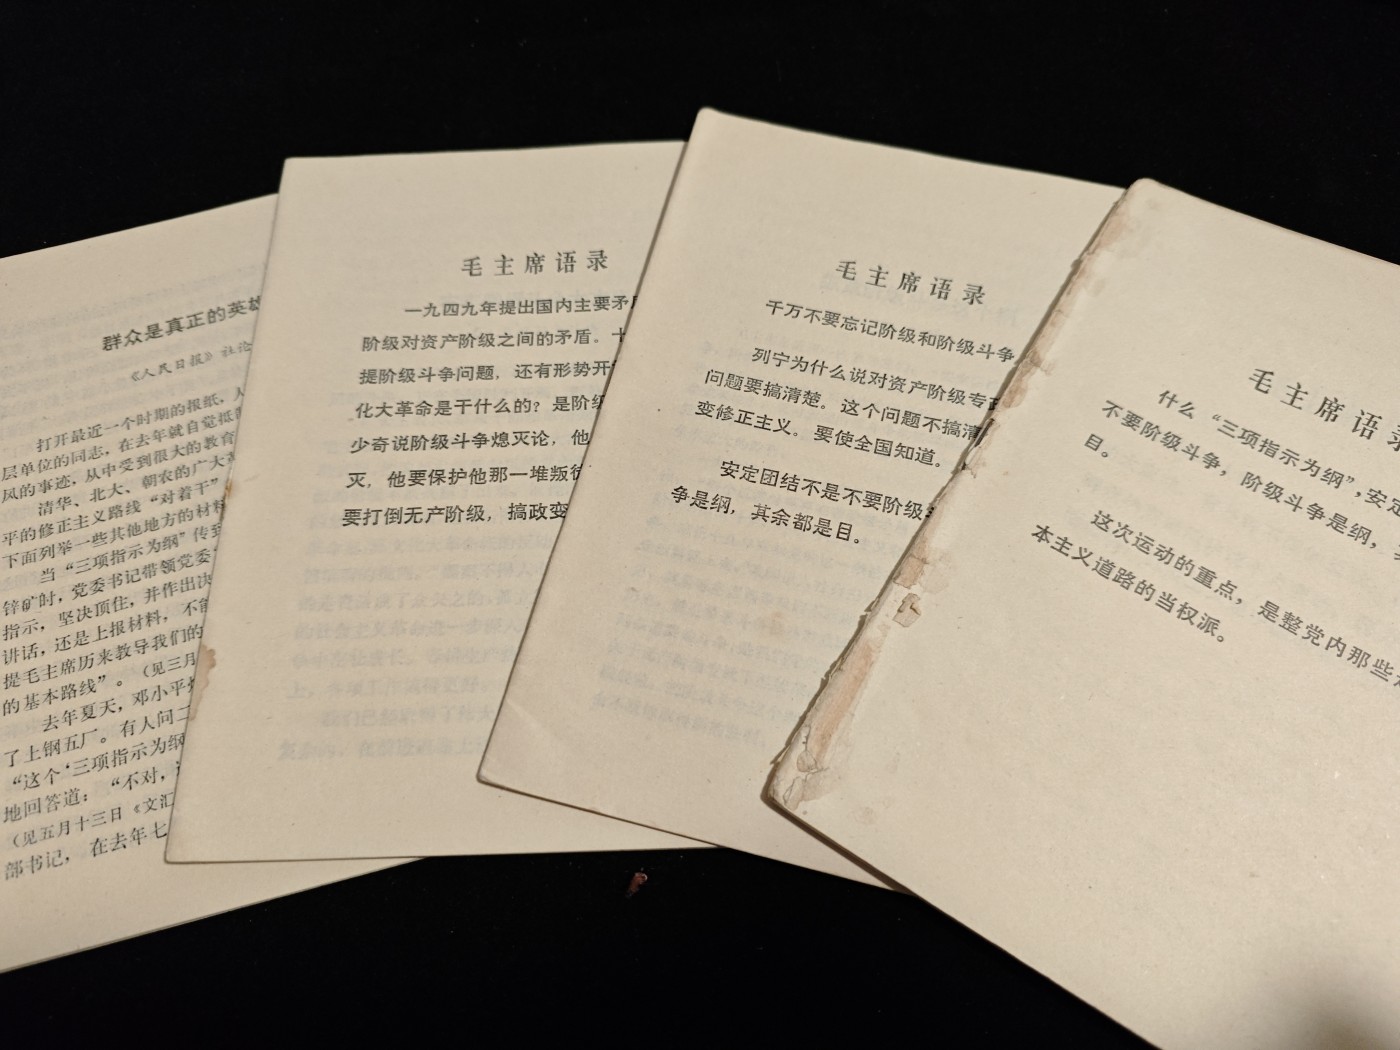 群众是真正的英雄
《人民日报》社论
打开最近一个时期的报纸，人
层单位的同志，在去年就自觉抵
风的事迹，从中受到很大的教育
清华、北大、朝农的广大革
平的修正主义路线“对着干”
下面列举一些其他地方的材料
当“三项指示为纲”传到
锌矿时，党委书记带领党委
指示，坚决顶住，并作出决
讲话，还是上报材料，不能
提毛主席历来教导我们的
的基本路线”。（见三月
去年夏天，邓小平
了上钢五厂。有人问二
“这个‘三项指示为纲
地回答道：“不对，
（见五月十三日《文汇
部书记，在去年七
毛主席语录
一九四九年提出国内主要矛
阶级对资产阶级之间的矛盾。十
提阶级斗争问题，还有形势开
化大革命是干什么的？是阶级
少奇说阶级斗争熄灭论，他
灭，他要保护他那一堆叛徒
要打倒无产阶级，搞政变
毛主席语录
千万不要忘记阶级和阶级斗争
列宁为什么说对资产阶级专政
问题要搞清楚。这个问题不搞清
变修正主义。要使全国知道。
安定团结不是不要阶级
争是纲，其余都是目。
毛主席语录
什么“三项指示为纲”，安定
不要阶级斗争，阶级斗争是纲，
目。
这次运动的重点，是整党内那些
本主义道路的当权派。